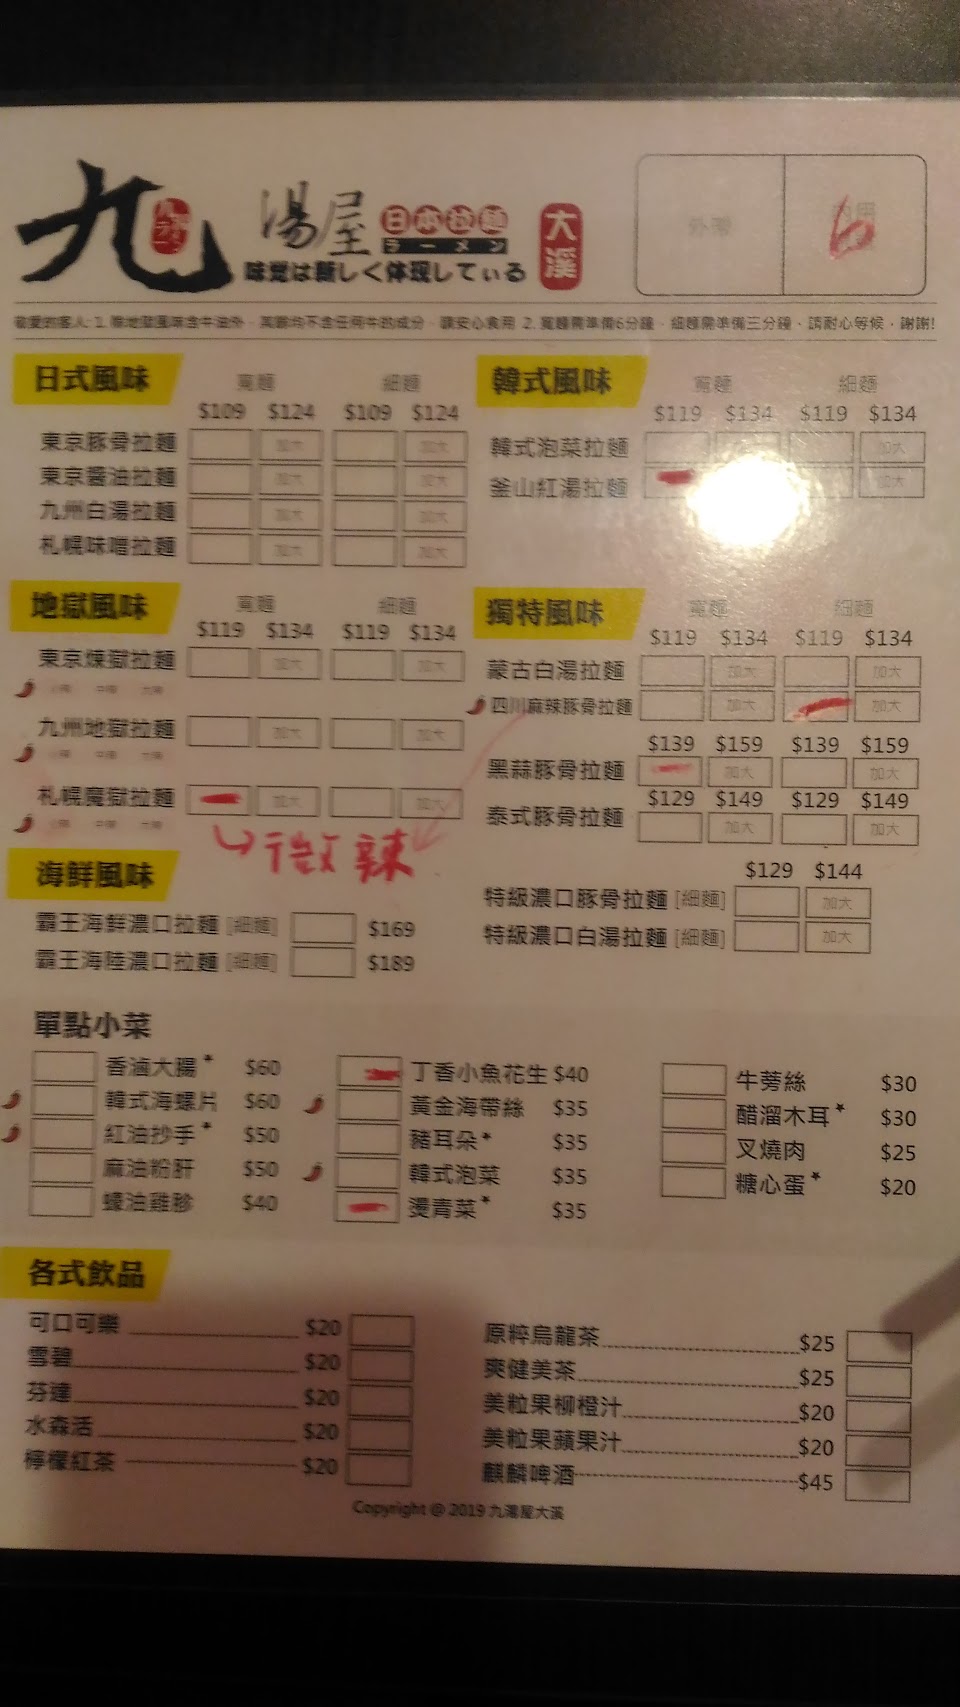 九湯屋 日本拉麵 大溪
ラーメン
味覚は新しく体現してぃる
外帶 內用 6
敬愛的客人:1. 除地獄風味含牛油外，其餘均不含任何牛的成分，請安心食用 2. 寬麵需準備6分鐘，細麵需準備三分鐘，請耐心等候，謝謝!
日式風味 寬麵 細麵
$109 $124 $109 $124
東京豚骨拉麵 加大 加大
東京醬油拉麵 加大 加大
九州白湯拉麵 加大 加大
札幌味噌拉麵 加大 加大
韓式風味 寬麵 細麵
$119 $134 $119 $134
韓式泡菜拉麵 加大
釜山紅湯拉麵 加大
地獄風味 寬麵 細麵
$119 $134 $119 $134
東京煉獄拉麵 加大 加大
小辣 中辣 大辣
九州地獄拉麵 加大 加大
小辣 中辣 大辣
札幌魔獄拉麵 加大 加大
小辣 中辣 大辣
微辣
獨特風味 寬麵 細麵
$119 $134 $119 $134
蒙古白湯拉麵 加大 加大
四川麻辣豚骨拉麵 加大 加大
$139 $159 $139 $159
黑蒜豚骨拉麵 加大 加大
$129 $149 $129 $149
泰式豚骨拉麵 加大 加大
$129 $144
特級濃口豚骨拉麵 [細麵] 加大
特級濃口白湯拉麵 [細麵] 加大
海鮮風味
霸王海鮮濃口拉麵 [細麵] $169
霸王海陸濃口拉麵 [細麵] $189
單點小菜
香滷大腸* $60
韓式海螺片 $60
紅油抄手* $50
麻油粉肝 $50
蠔油雞胗 $40
丁香小魚花生 $40
黃金海帶絲 $35
豬耳朵* $35
韓式泡菜 $35
燙青菜* $35
牛蒡絲 $30
醋溜木耳* $30
叉燒肉 $25
糖心蛋* $20
各式飲品
可口可樂 $20
雪碧 $20
芬達 $20
水森活 $20
檸檬紅茶 $20
原粹烏龍茶 $25
爽健美茶 $25
美粒果柳橙汁 $20
美粒果蘋果汁 $20
麒麟啤酒 $45
Copyright @ 2019 九湯屋大溪